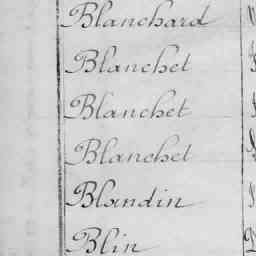 Blanchard
Blanchet
Blanchet
Blanchet
Blandin
Blin